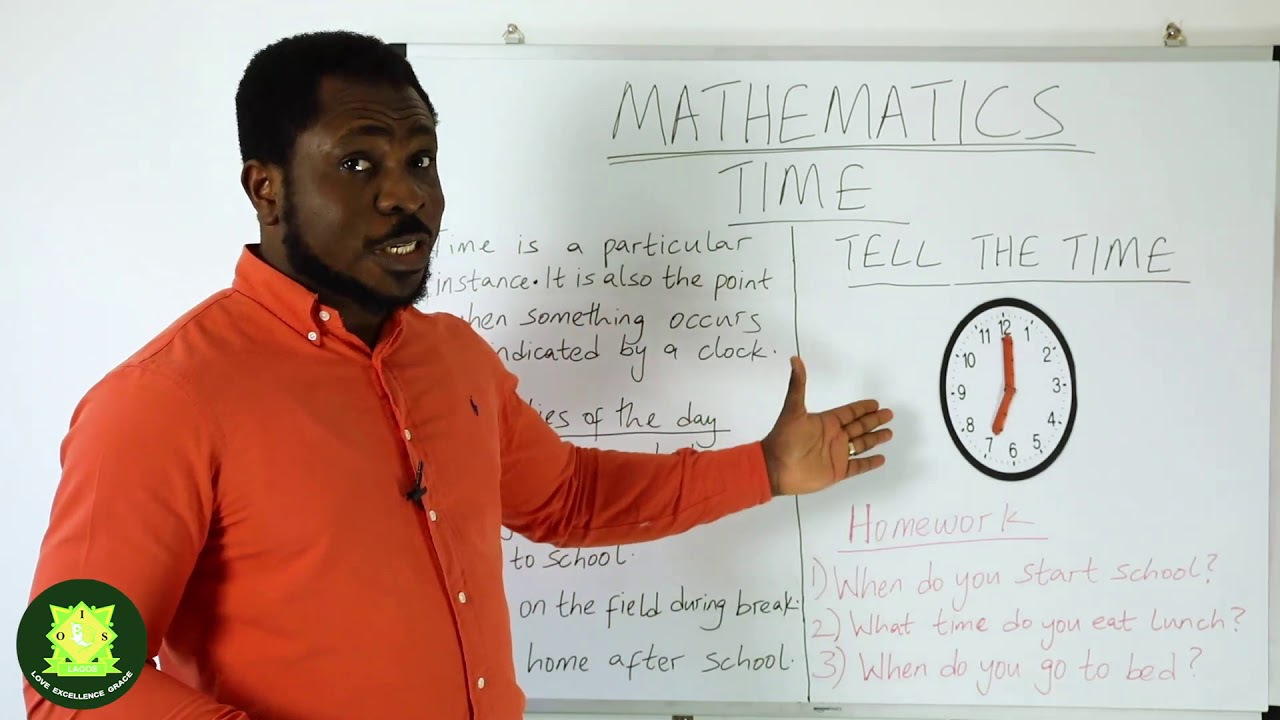 MATHEMATICS
TIME
Time is a particular
instance. It is also the point
when something occurs
indicated by a clock.
of the day
to school.
on the field during break.
home after school.
TELL THE TIME
12
1
2
3
4
5
6
7
8
9
10
11
Homework
1) When do you start school?
2) What time do you eat lunch?
3) When do you go to bed?
O I S
LAGOS
LOVE EXCELLENCE GRACE